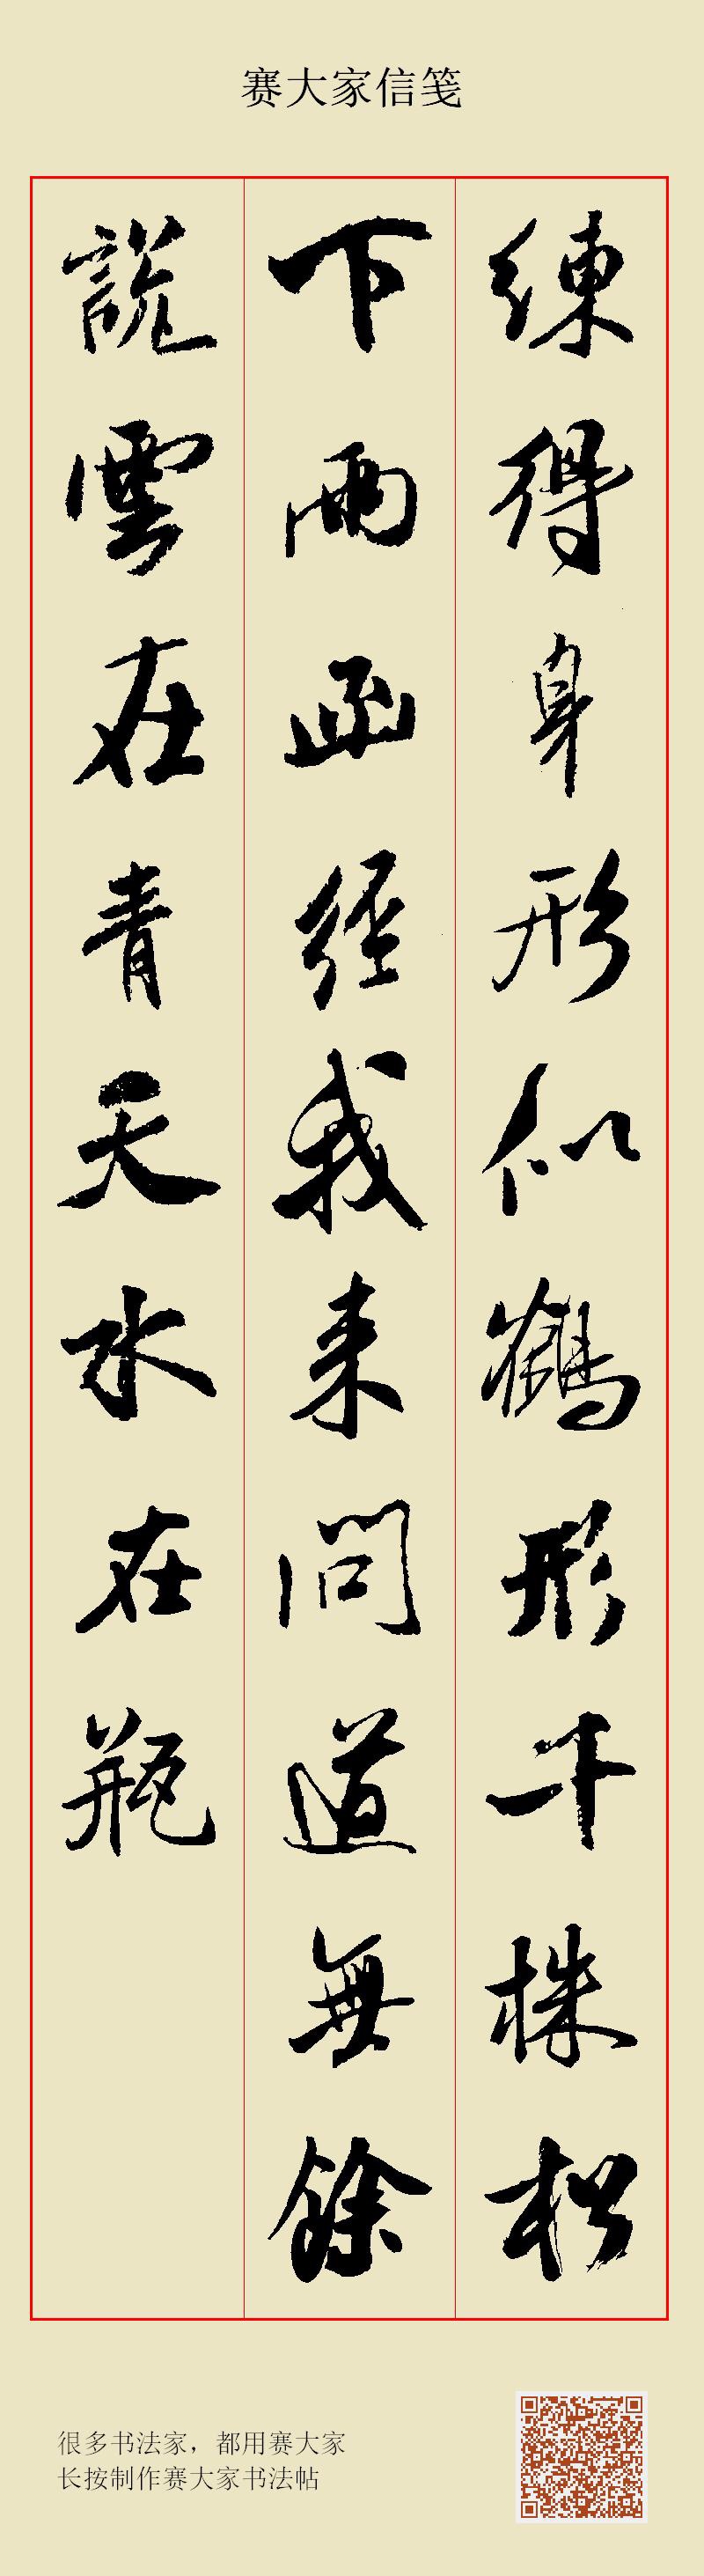 赛大家信笺
練得身形似鶴形千株松
下兩函經我来問道無餘
説雲在青天水在瓶
很多书法家，都用赛大家
长按制作赛大家书法帖